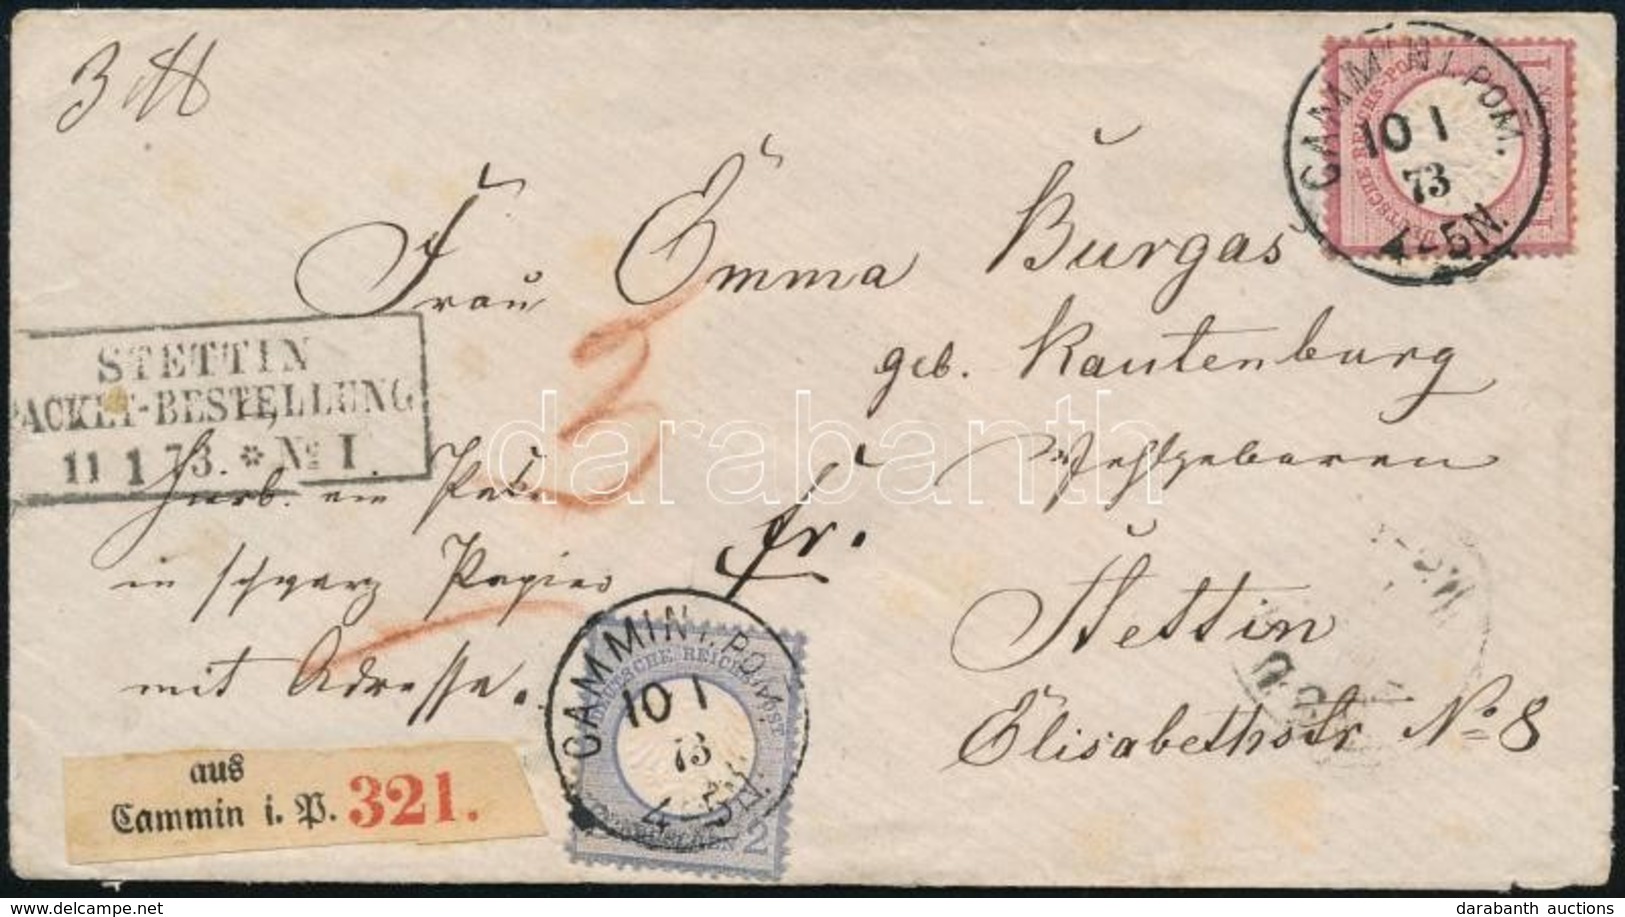 3 ℔
CAMMIN I. POM.
10 1
73
4-5N.
DEUTSCHE REICHS-POST
1
Frau Emma Burgas
geb. Rautenburg
Wohlgeboren
Stettin
Elisabethstr No 8
fr.
3
STETTIN
PACKET-BESTELLUNG
11 1 73. * No I.
Hierb. ein Paket
in schwarz Papier
mit Adresse.
aus
Cammin i. P. 321.
CAMMIN I. POM.
10 1
73
4-5N.
DEUTSCHE REICHS-POST
2 GROSCHEN 2
darabanth
delcampe.net
darabanth auctions